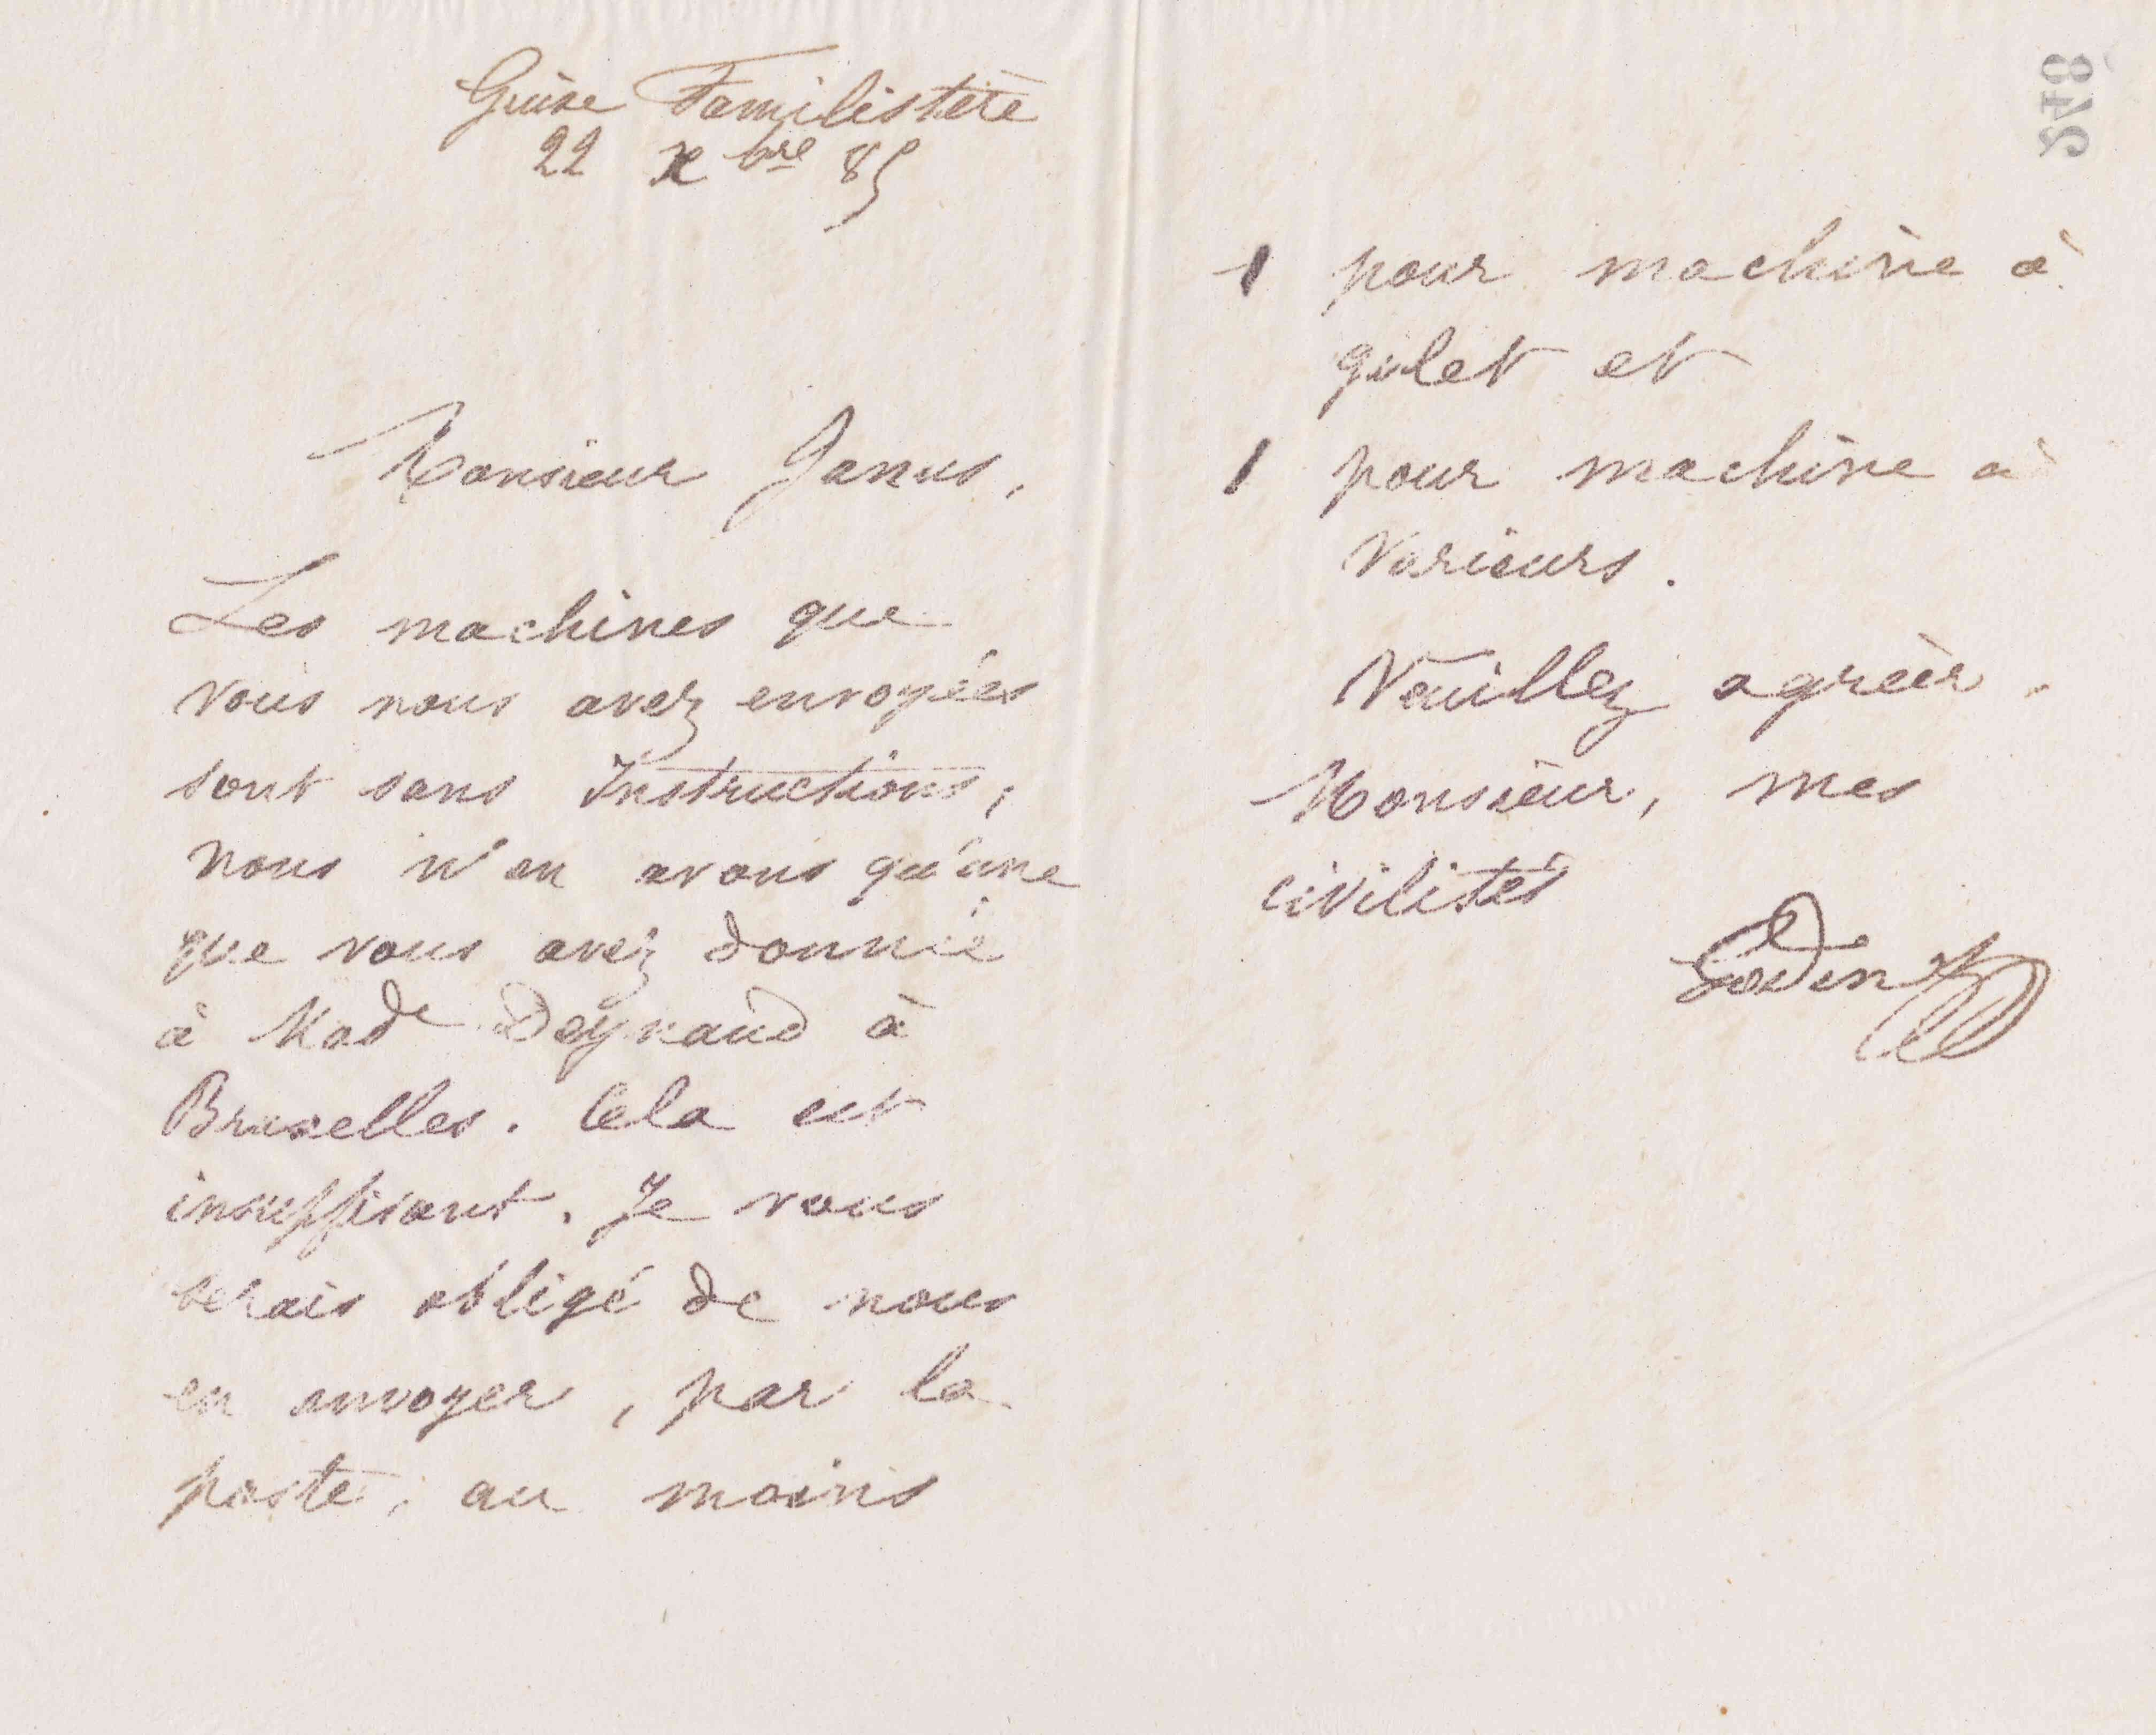 Guise Familistère
22 Xbre 85
Monsieur Janus,
Les machines que
vous nous avez envoyées
sont sans Instructions,
nous n'en avons qu'une
que vous avez donnée
à Made Deynaud à
Bruxelles. Cela est
insuffisant. Je vous
serais obligé de nous
en envoyer, par la
poste, au moins
248
1 pour machine à
gilet et
1 pour machine à
Varieurs.
Veuillez agréer,
Monsieur, mes
civilités
Godin